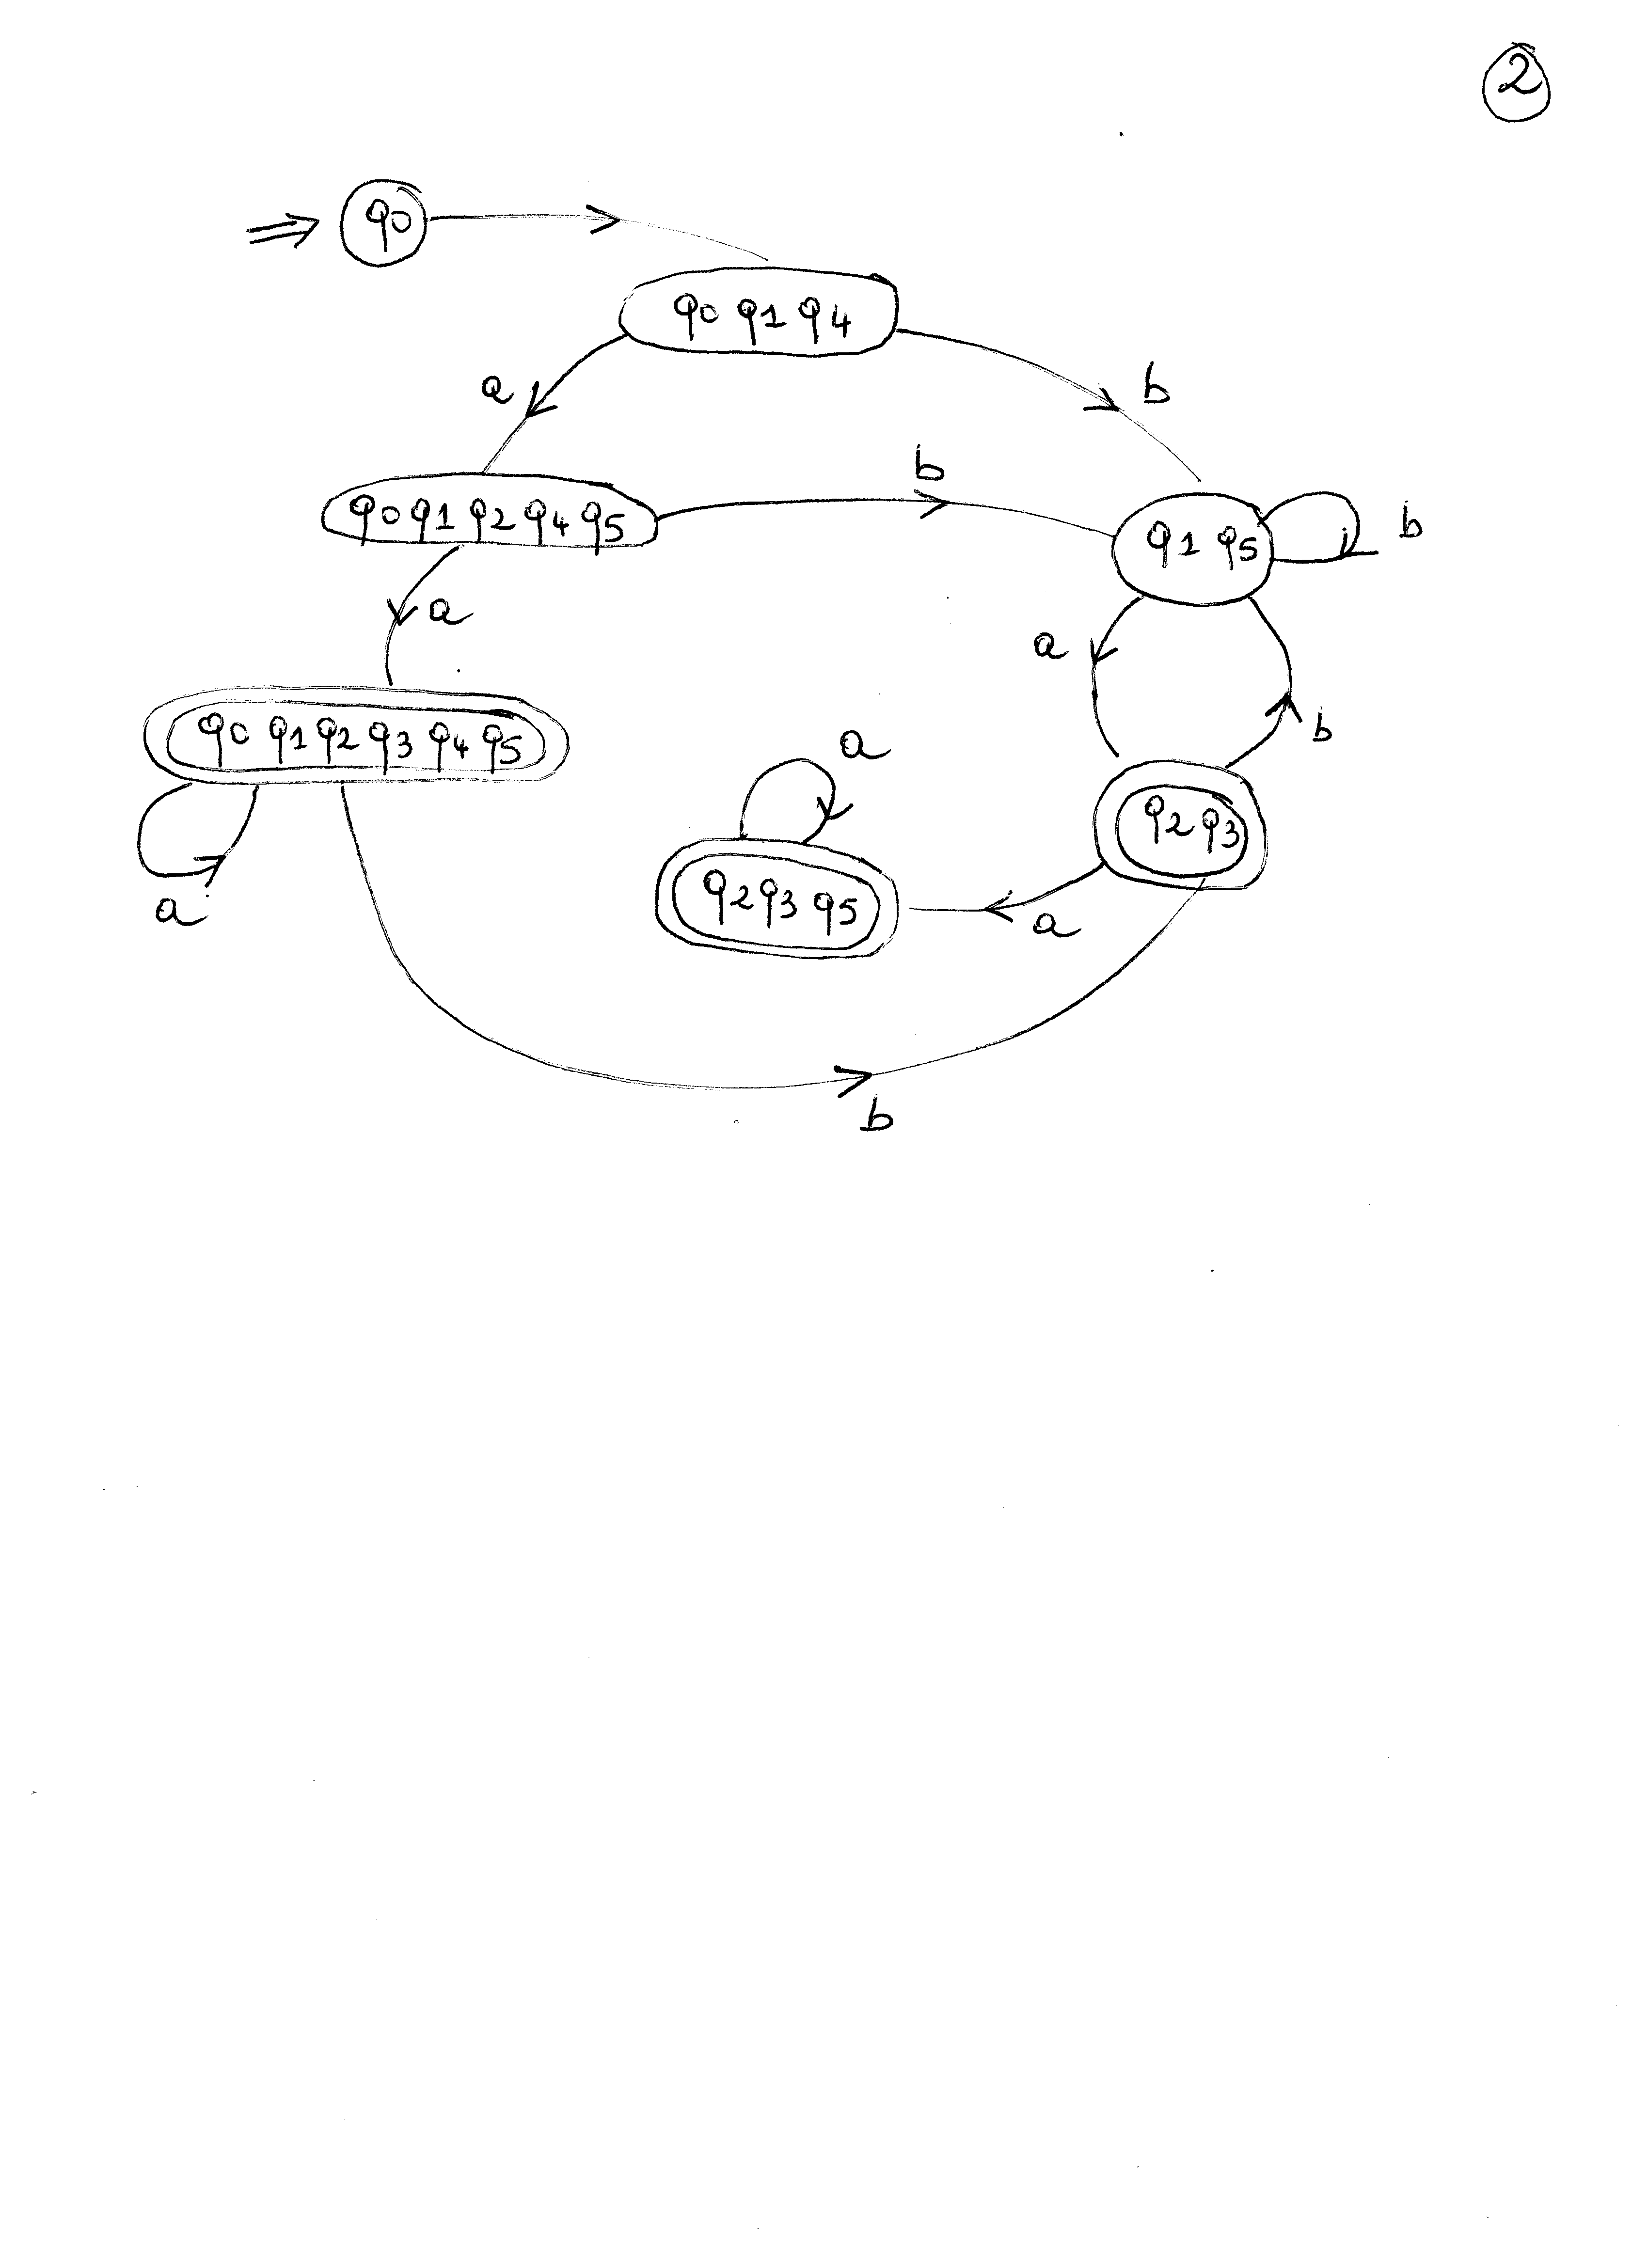 2
q0
q0 q1 q4
a
b
b
q0 q1 q2 q4 q5
q1 q5
b
a
a
q0 q1 q2 q3 q4 q5
b
a
q2 q3
q2 q3 q5
a
a
b